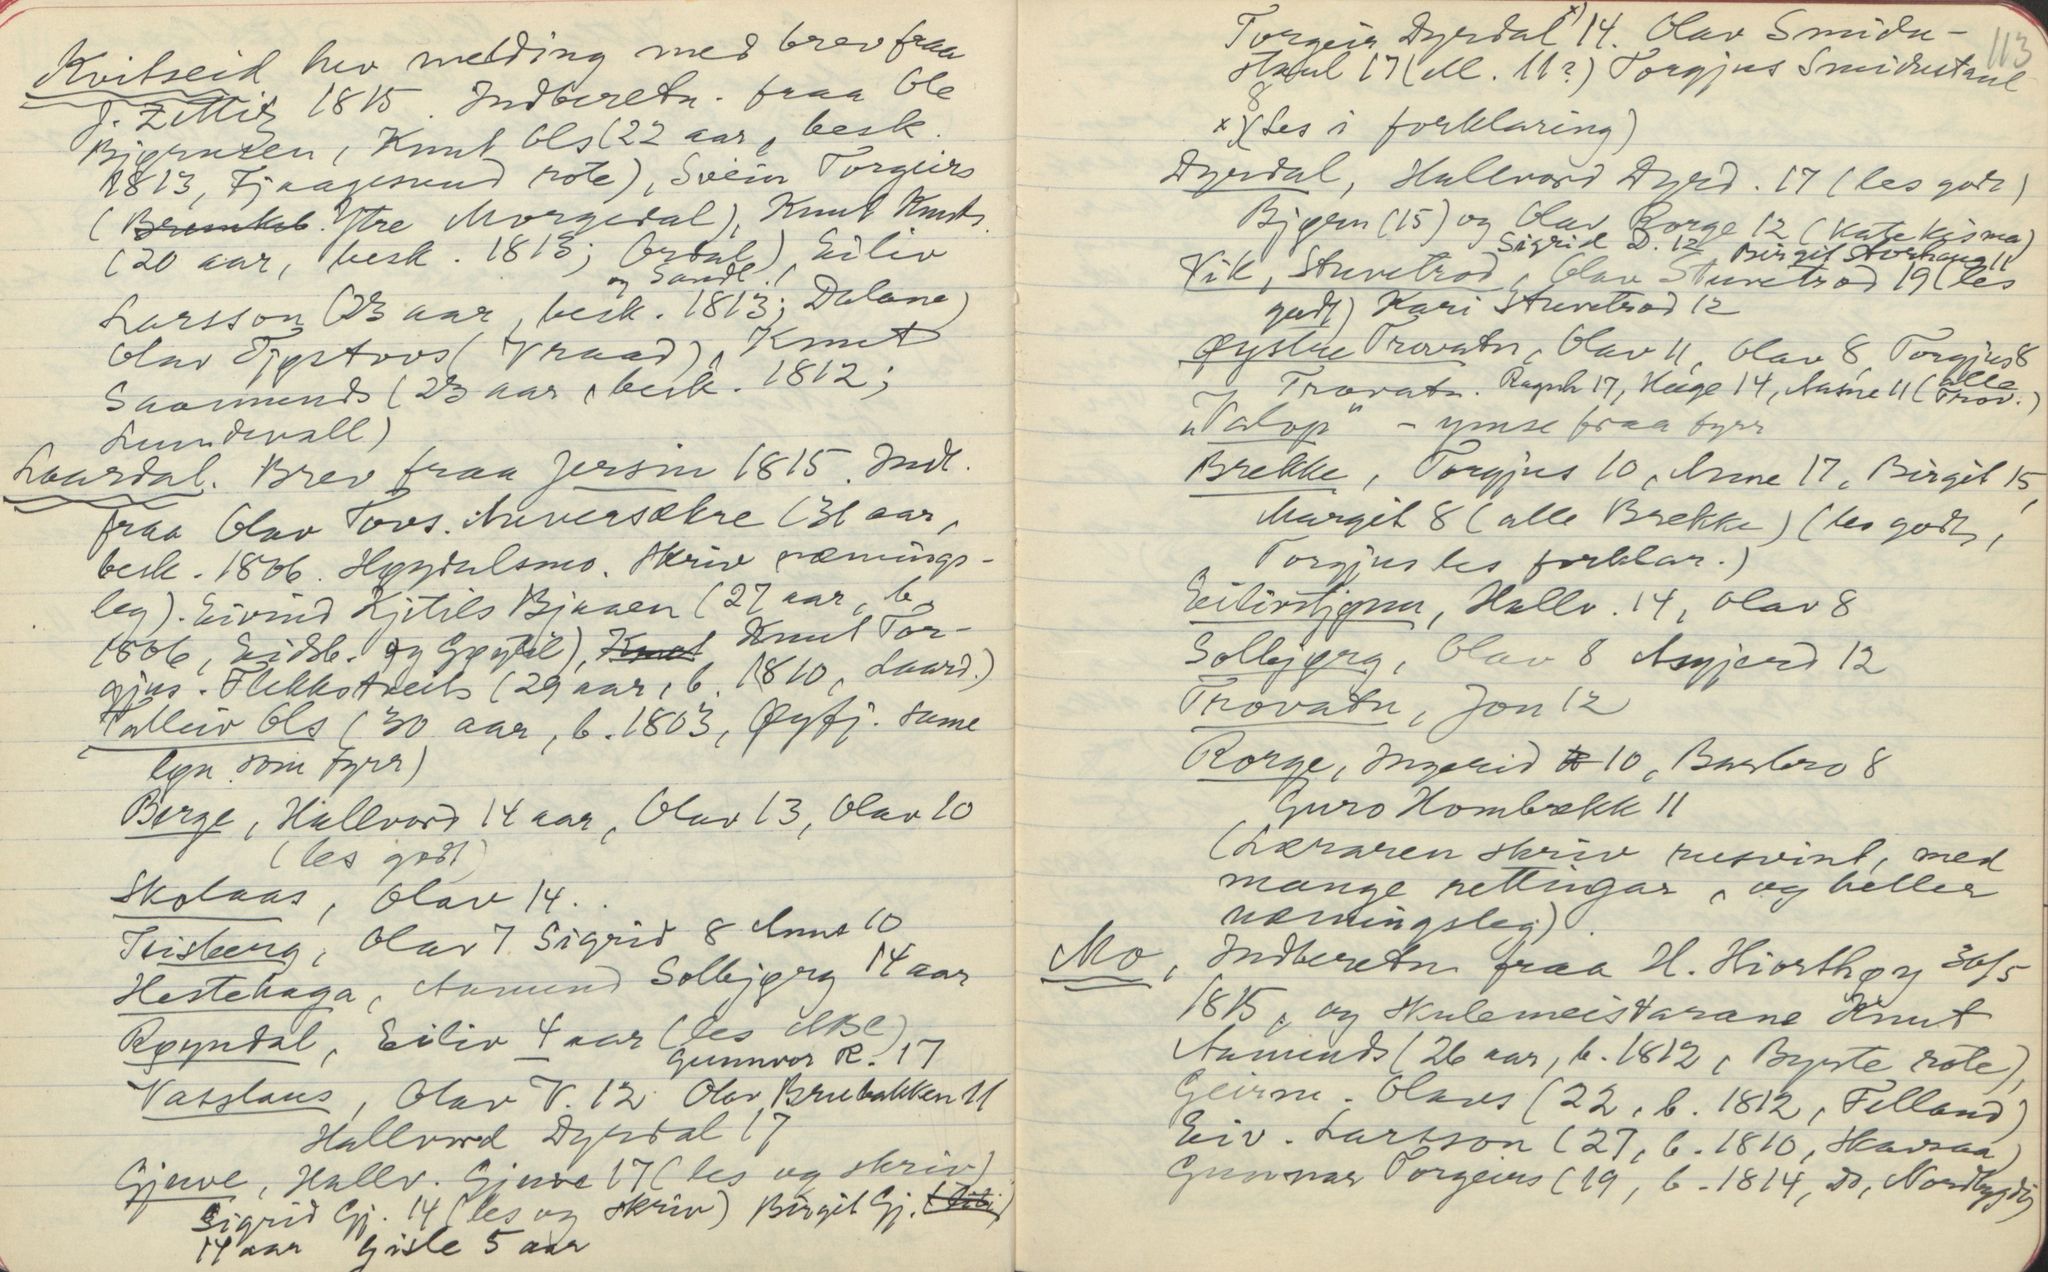 Kvitseid hev melding med brev fraa
J. Zetlitz 1815. Indberetn. fraa Ole
Bjørnsen, Knut Ols (22 aar, besk.
1813, Fjaagesund rote), Svein Torgeirs
(Brunkeb. Ytre Morgedal), Knut Knuts.
(20 aar, besk. 1813; Ordal), Eiliv
og Sandl.
Larsson (23 aar, besk. 1813; Dalane)
Olav Tjøstovs (Vraad), Knut
Saamunds (23 aar, besk. 1812;
Lundevall)
Laardal. Brev fraa Jersin 1815. Indb.
fraa Olav Tovs. Aaversækre (31 aar,
besk. 1806. Høydalsmo. Skriv næmings-
leg). Eivind Kjetils Bjaaen (27 aar, b.
1806, Eidsb. og Gøytil), Knut Knut Tor-
gjus. Flekkstveit (29 aar, b. 1810, Laard.)
Talleiv Ols (30 aar, b. 1803, Øyfj. same
logn som fyrr)
Berge, Hallvord 14 aar, Olav 13, Olav 10
(les godt)
Skolaas, Olav 14.
Tvisberg, Olav 7 Sigrid 8 Anne 10
Hestehaga, Aamund Solbjørg 14 aar
Røyndal, Eiliv 4 aar (les ABC)
Gunnvor R. 17
Vasslaus, Olav V. 12 Olav Brubakken 11
Hallvord Dyrdal 17
Gjuve, Hallv. Gjuve 17 (les og skriv)
Sigrid Gj. 14 (les og skriv) Birgit Gj.
14 aar Gisle 5 aar
113
Torgeir Dyrdal x) 14. Olav Smidu-
staul 17 (M. 11?) Torgjus Smidustaul
8
x) (les i forklaring)
Dyrdal, Hallvord Dyrd. 17 (les godt)
Bjørn (15) og Olav Rorge 12 (katekisma)
Sigrid D. 12 Birgit Storhaug 11
Vik, Stuvetrod, Olav Stuvetrod 19 (les
godt) Kari Stuvetrod 12
Øystre Trovatn, Olav 11, Olav 8, Torgjus 8
Trovatn. Ragnh 17, Hæge 14, Aasne 11 (alle Trov.)
"Valop" - ymse fraa fyrr
Brekke, Torgjus 10, Anne 17, Birgit 15,
Margit 8 (alle Brekke) (les godt,
Torgjus les forklar.)
Eilivstjønn, Hallv. 14, Olav 8
Solbjørg, Olav 8 Asgjerd 12
Trovatn, Jon 12
Rorge, Ingerid 10, Barbro 8
Guro Hombækk 11
(Læraren skriv rusvint, med
mange rettingar, og heller
næmingsleg).
Mo, Indberetn fraa H. Hiorthøy 30/5
1815, og skulemeistarane Knut
Aamunds (26 aar, b. 1812, Byrte rote),
Geirm. Olavs (22, b. 1812, Felland)
Eiv. Larsson (27, b. 1810, Skarsaa)
Gunnar Torgeirs (19, b. 1814, Do, Nordbygdi)